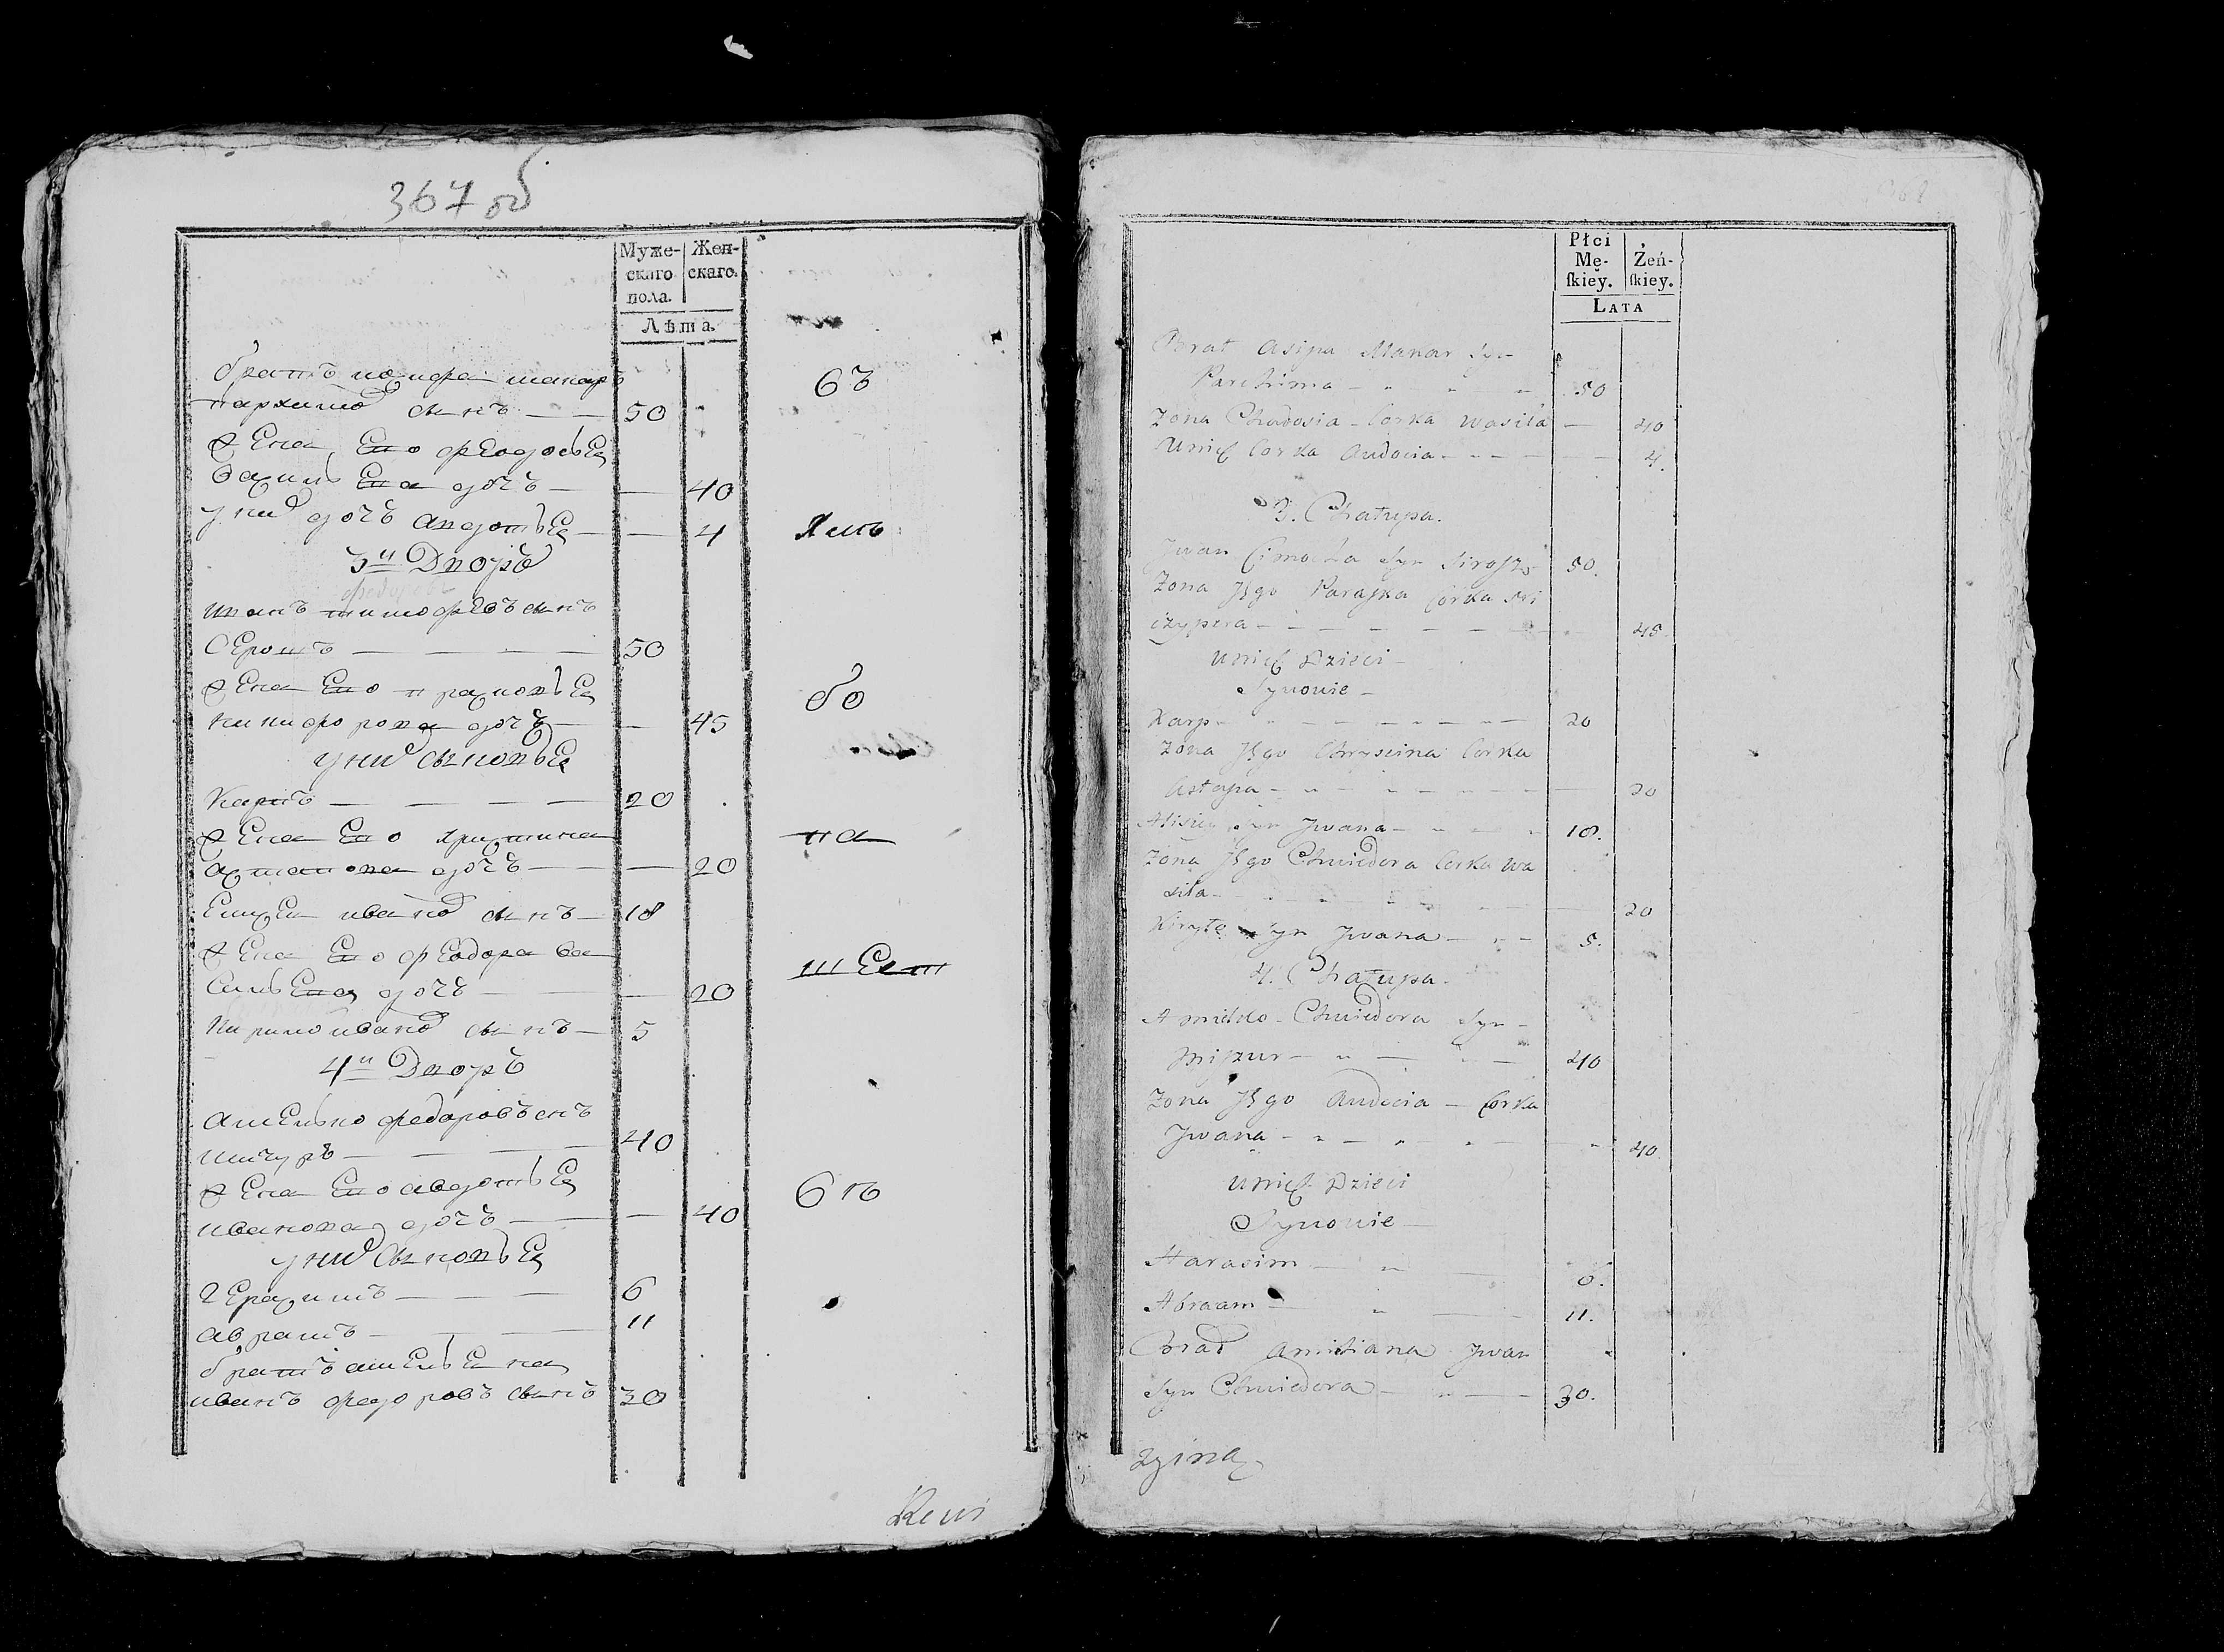 367 об
Муже-
скаго
пола.
Жен-
скаго.
Лѣта.
братъ макаръ
сынъ — — 50
Жена Его Феодосья
васильева дочь — — 40
у них дочь авдотья — — 4
3й Дворъ
федоровъ
иванъ тимофеевъ сынъ
Серошъ — — — — 50
Жена Его прасковья
никифорова дочь — — 45
у них сыновья
Карпъ — — — — 20
Жена Его христина
астапова дочь — — 20
иванов сынъ — 18
Жена Его Феодора ва
сильева дочь — — 20
кирило иванов сынъ — 5
4й Дворъ
амельно федоровъ снъ
мичуръ — — — 40
Жена Его авдотья
иванова дочь — — 40
у них сыновья
герасимъ — — — 6
аврамъ — — — 11
братъ амельяна
иванъ федоровъ сынъ 30
бъ
Явль
бо
на
шест
въ
Rewi
Płci
Mę-
skiey.
Żeń-
skiey.
LATA
Brat Asipa Makar Syn
Parchima — " " " 50
Zona Chwadosia Corka Wasila — 40
Unich Corka Audocia - - - — 4.
3. Chałupa.
Jwan Cimocha Syn Sirosz 50.
Zona Jego Paraska Corka Ni
czypera - - — — — — 45
Unich Dzieci -
Synowie -
Karp - " - — — - — " — 20
Zona Jego Chryscina Corka
Astapa - " - " - - — — 20
Syn Jwana — - — " 18.
Zona Jego Chwiedora Corka Wa
sila - — 20
Kiryło Syn Jwana — " - 5.
4. Chałupa.
Amielko - Chwiedora Syn -
Miszur — " — " — 40
Zona Jego Audocia — Corka
Jwana - " — " - " — " 40
Unich Dzieci
Synowie —
Harasim — " — 6.
Abraam — " — 11.
Brad Amiliana Jwan
Syn Chwiedora — " — 30.
zyina